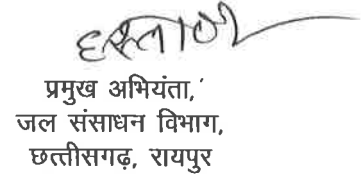 प्रमुख अभियंता,
जल संसाधन विभाग,
छत्तीसगढ़, रायपुर